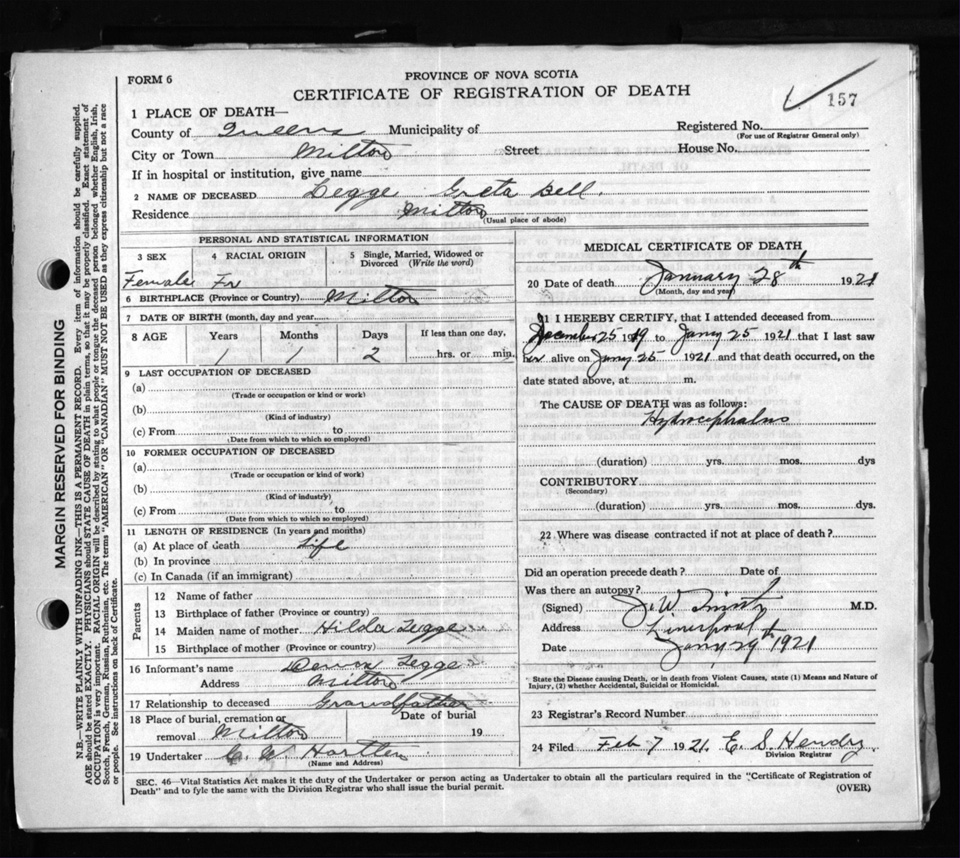 FORM 6
PROVINCE OF NOVA SCOTIA
CERTIFICATE OF REGISTRATION OF DEATH
157
1 PLACE OF DEATH—
County of Queens Municipality of
Registered No.
(For use of Registrar General only)
City or Town Milton Street House No.
If in hospital or institution, give name
2 NAME OF DECEASED Legge Greta Bell.
Residence Milton
(Usual place of abode)
PERSONAL AND STATISTICAL INFORMATION
3 SEX 4 RACIAL ORIGIN 5 Single, Married, Widowed or Divorced (Write the word)
Female Fr
6 BIRTHPLACE (Province or Country) Milton
7 DATE OF BIRTH (month, day and year)
8 AGE Years Months Days If less than one day,
1 1 2 hrs. or min.
9 LAST OCCUPATION OF DECEASED
(a)
(Trade or occupation or kind or work)
(b)
(Kind of industry)
(c) From to
(Date from which to which so employed)
10 FORMER OCCUPATION OF DECEASED
(a)
(Trade or occupation or kind of work)
(b)
(Kind of industry)
(c) From to
(Date from which to which so employed)
11 LENGTH OF RESIDENCE (In years and months)
(a) At place of death Life
(b) In province
(c) In Canada (if an immigrant)
Parents
12 Name of father
13 Birthplace of father (Province or country)
14 Maiden name of mother Hilda Legge
15 Birthplace of mother (Province or country)
16 Informant's name Legge
Address Milton
17 Relationship to deceased Grandfather
18 Place of burial, cremation or removal Milton
Date of burial 19
19 Undertaker C. W. Hartlen
(Name and Address)
MEDICAL CERTIFICATE OF DEATH
20 Date of death January 28th 1921
(Month, day and year)
21 I HEREBY CERTIFY, that I attended deceased from
December 25 1919 to Jany 25 1921 that I last saw
her alive on Jany 25 1921 and that death occurred, on the
date stated above, at m.
The CAUSE OF DEATH was as follows:
Hydrocephalus
(duration) yrs. mos. dys
CONTRIBUTORY
(Secondary)
(duration) yrs. mos. dys.
22 Where was disease contracted if not at place of death?
Did an operation precede death? Date of
Was there an autopsy?
(Signed) J. W. M.D.
Address Liverpool
Date Jany 29th 1921
* State the Disease causing Death, or in death from Violent Causes, state (1) Means and Nature of
Injury, (2) whether Accidental, Suicidal or Homicidal.
23 Registrar's Record Number
24 Filed Feb 7 1921 E. S. Hendry.
Division Registrar
SEC. 46—Vital Statistics Act makes it the duty of the Undertaker or person acting as Undertaker to obtain all the particulars required in the "Certificate of Registration of
Death" and to fyle the same with the Division Registrar who shall issue the burial permit.
(OVER)
MARGIN RESERVED FOR BINDING
N.B.—WRITE PLAINLY WITH UNFADING INK—THIS IS A PERMANENT RECORD. Every item of information should be carefully supplied.
AGE should be stated EXACTLY. PHYSICIANS should STATE CAUSE OF DEATH in plain terms, so that it may be properly classified. Exact statement of
OCCUPATION is very important. RACIAL ORIGIN will be described by stating to what people or tongue the deceased person belonged whether English, Irish,
Scotch, French, German, Russian, Ruthenian, etc. The terms "AMERICAN" OR "CANADIAN" MUST NOT BE USED as they express citizenship but not a race
or people. See instructions on back of Certificate.